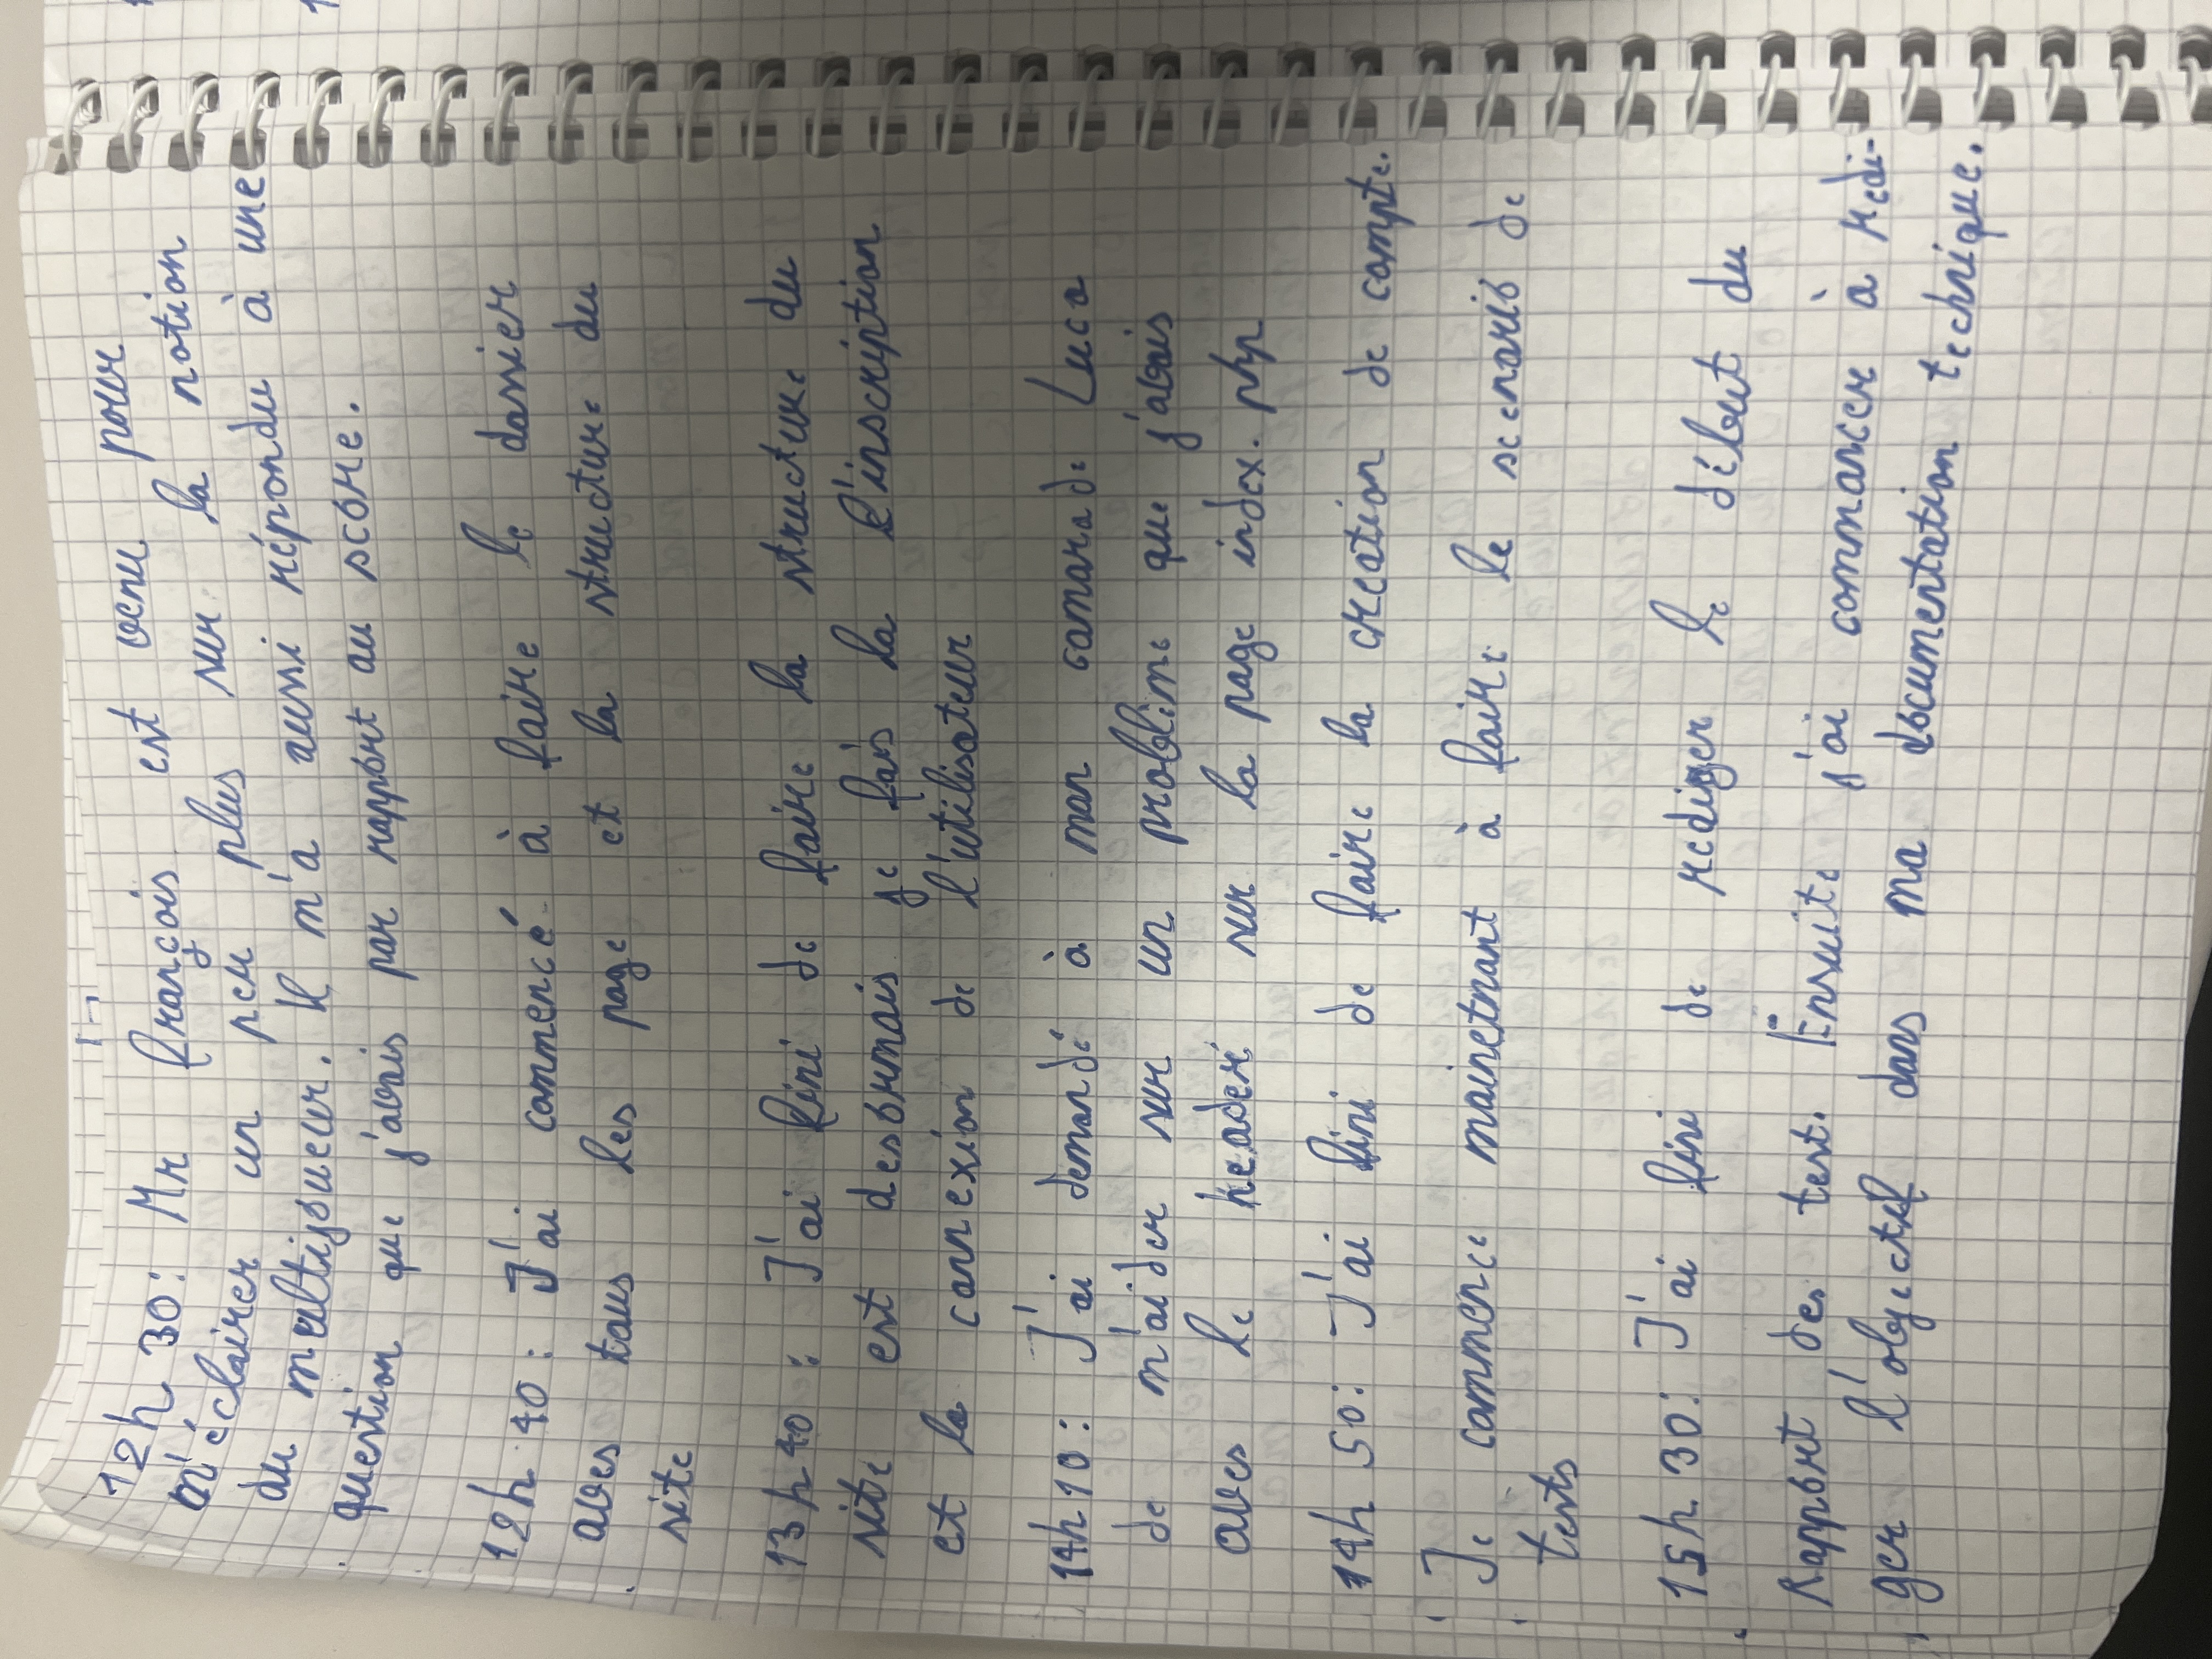 12h 30: Mr françois est venu pour
m'éclairer un peu plus sur la notion
du multijoueur. Il m'a aussi répondu à une
question que j'avais par rapport au score.
12h 40: J'ai commencé à faire le dossier
aves tous les page et la structure du
site
13h40: J'ai fini de faire la structure du
site est desormais je fais la l'inscription
et la connexion de l'utilisateur
14h10: J'ai demandé à mon camarade Luca
de m'aider sur un problème que j'avais
aves le header sur la page index.php
14h 50: J'ai fini de faire la creation de compte.
Je commence mainetnant à faire le scenario de
tests
15h 30: J'ai fini de rediger le début du
Rapport des test. Ensuite j'ai commancer à redi-
ger l'objectif dans ma documentation technique.